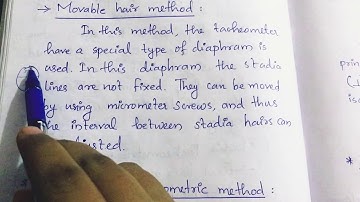 → Movable hair method :
In this method, the tacheometer
have a special type of diaphram is
used. In this diaphram the stadia
lines are not fixed. They can be moved
by using micrometer screws, and thus
the interval between stadia hairs can
justed.
ometric method :
prin
(⊥
iso
*